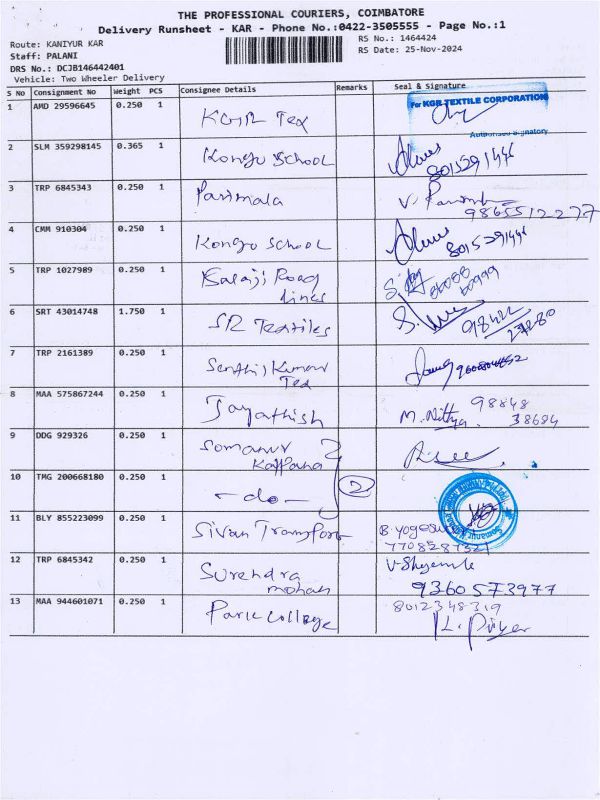 THE PROFESSIONAL COURIERS, COIMBATORE
Delivery Runsheet - KAR - Phone No.:0422-3505555 - Page No.:1
Route: KANIYUR KAR
RS No.: 1464424
Staff: PALANI
RS Date: 25-Nov-2024
DRS No.: DCJB146442401
Vehicle: Two Wheeler Delivery
S No Consignment No Weight PCS Consignee Details Remarks Seal & Signature
1 AMD 29596645 0.250 1 KGR Tex For KGR TEXTILE CORPORATION
Authorised Signatory
2 SLM 359298145 0.365 1 Kongu School 8015291446
3 TRP 6845343 0.250 1 Parimala V. 9865512277
4 CMM 910304 0.250 1 Kongu School 8015291446
5 TRP 1027989 0.250 1 Balaji Road
Lines
6 SRT 43014748 1.750 1 SR Textiles 98422
27280
7 TRP 2161389 0.250 1 Senthil Kumar
Tex
8 MAA 575867244 0.250 1 Jayathish M. Nithya 98848
38684
9 DDG 929326 0.250 1 Somanur
Kalpana
10 TMG 200668180 0.250 1 - do - 2
11 BLY 855223099 0.250 1 Sivan Transport B. Yogeswari
12 TRP 6845342 0.250 1 Surendra
mohan
9360573977
13 MAA 944601071 0.250 1 Park College 8012348319